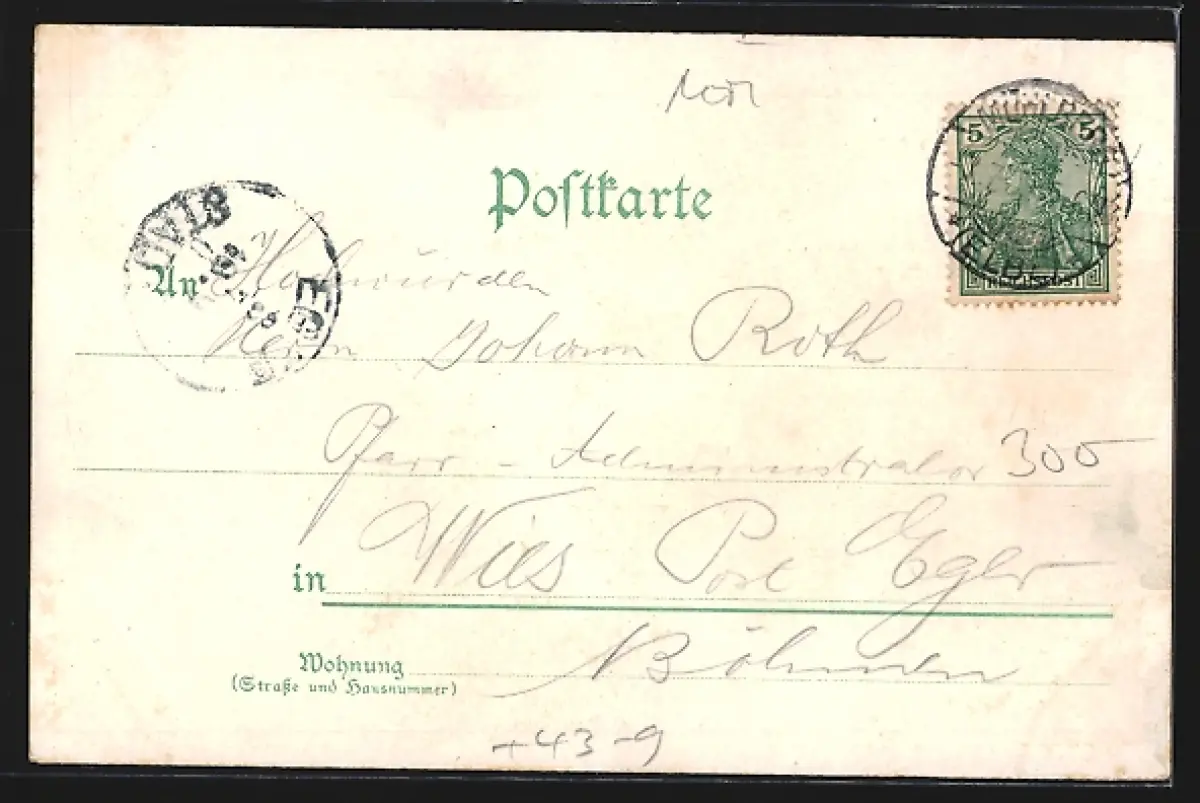 Postkarte
An Hochwürden
Herrn Johann Roth
Pfarr - Administrator 300
in Wies Post Eger
Böhmen
Wohnung
(Straße und Hausnummer)
+43-9
5 5
REICHSPOST
EGER
STADT